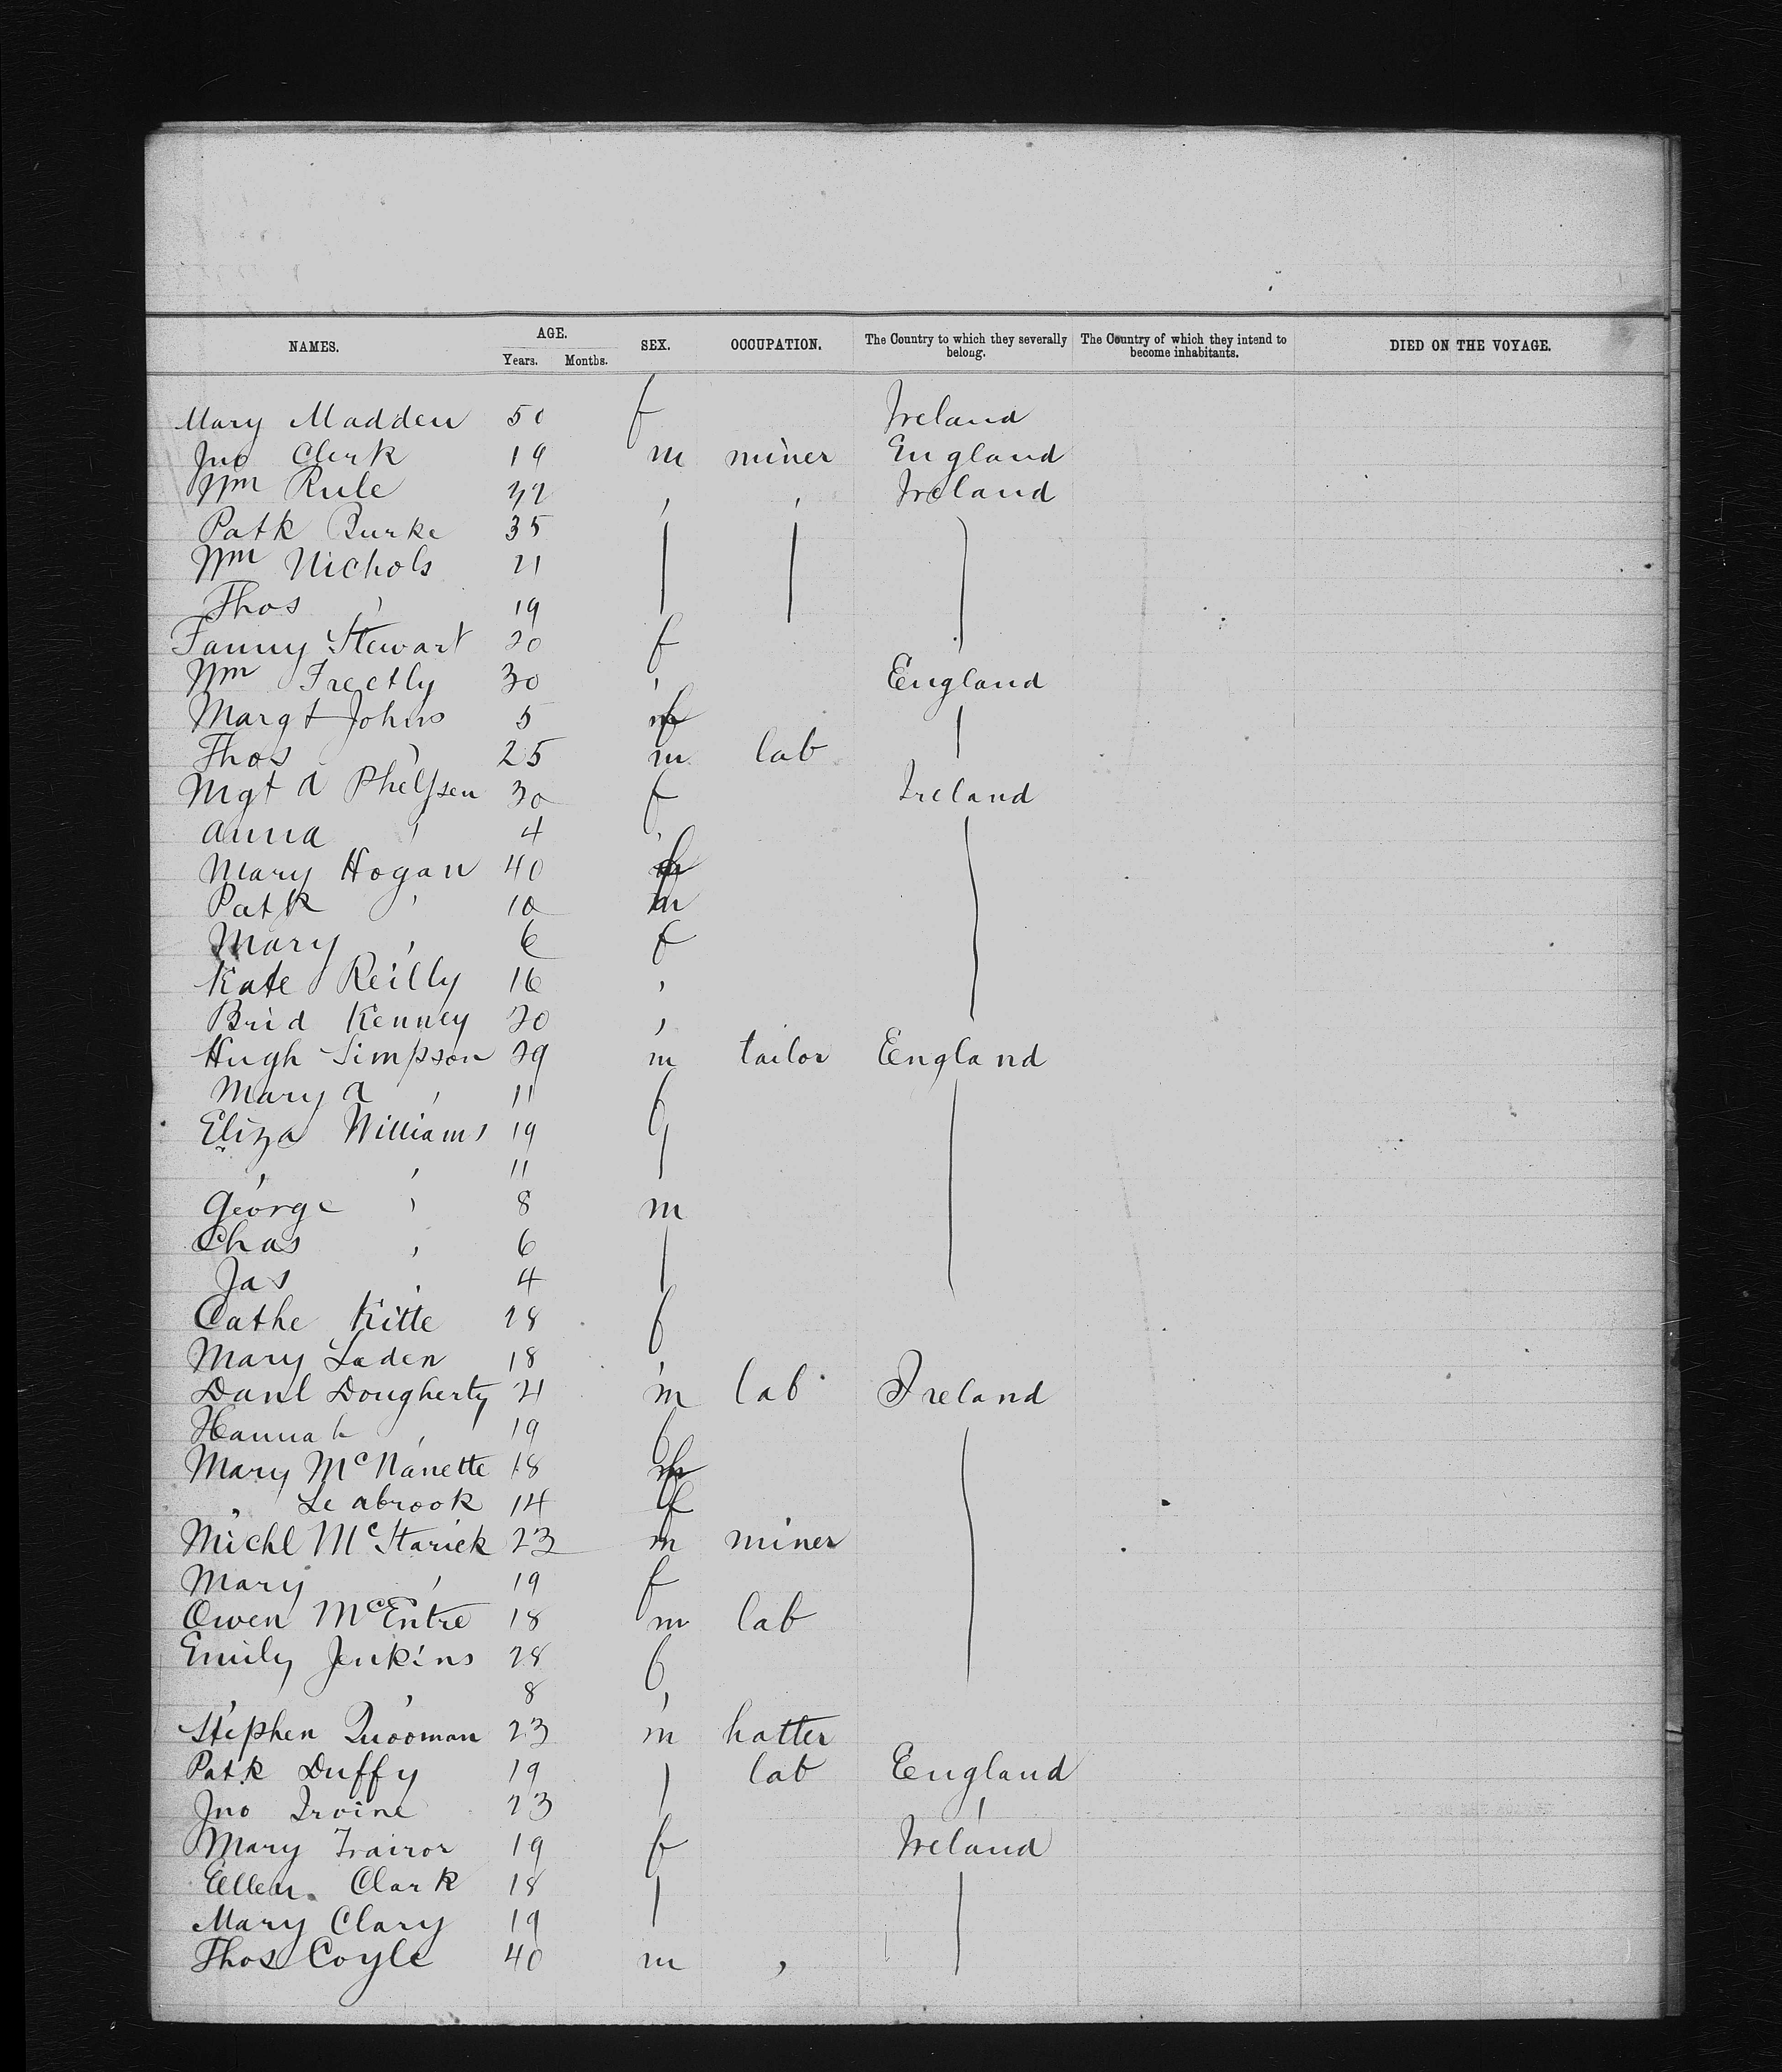 NAMES. AGE. SEX. OCCUPATION. The Country to which they severally belong. The Country of which they intend to become inhabitants. DIED ON THE VOYAGE.
Years. Months.
Mary Madden 50 f Ireland
Jno Clerk 19 m miner England
Wm Rule 42 , , Ireland
Patk Burke 35
Wm Nichols 21
Thos , 19
Fanny Stewart 20 f
Wm Treetly 30 , England
Margt Johns 5 f
Thos , 25 m lab
Mgt A 30 f Ireland
Anna , 4 ,
Mary Hogan 40 f
Patk , 10 m
Mary , 6 f
Kate Reilly 16 ,
Brid Kenney 20 ,
Hugh Simpson 29 m tailor England
Mary A , 11 f
Eliza Williams 19
, , 11
George , 8 m
Chas , 6
Jas , 4
Cathe Kitte 28 f
Mary Laden 18 ,
Danl Dougherty 21 m lab Ireland
Hannah , 19 f
Mary McNanette 18 f
" Seabrook 14 f
Michl McStarick 23 m miner
Mary , 19 f
Owen McEntre 18 m lab
Emily Jenkins 28 f
, , 8 ,
Stephen 23 m hatter
Patk Duffy 19 lab England
Jno Irvine 23 ,
Mary Trairor 19 f Ireland
Ellen Clark 18
Mary Clary 19
Thos Coyle 40 m ,